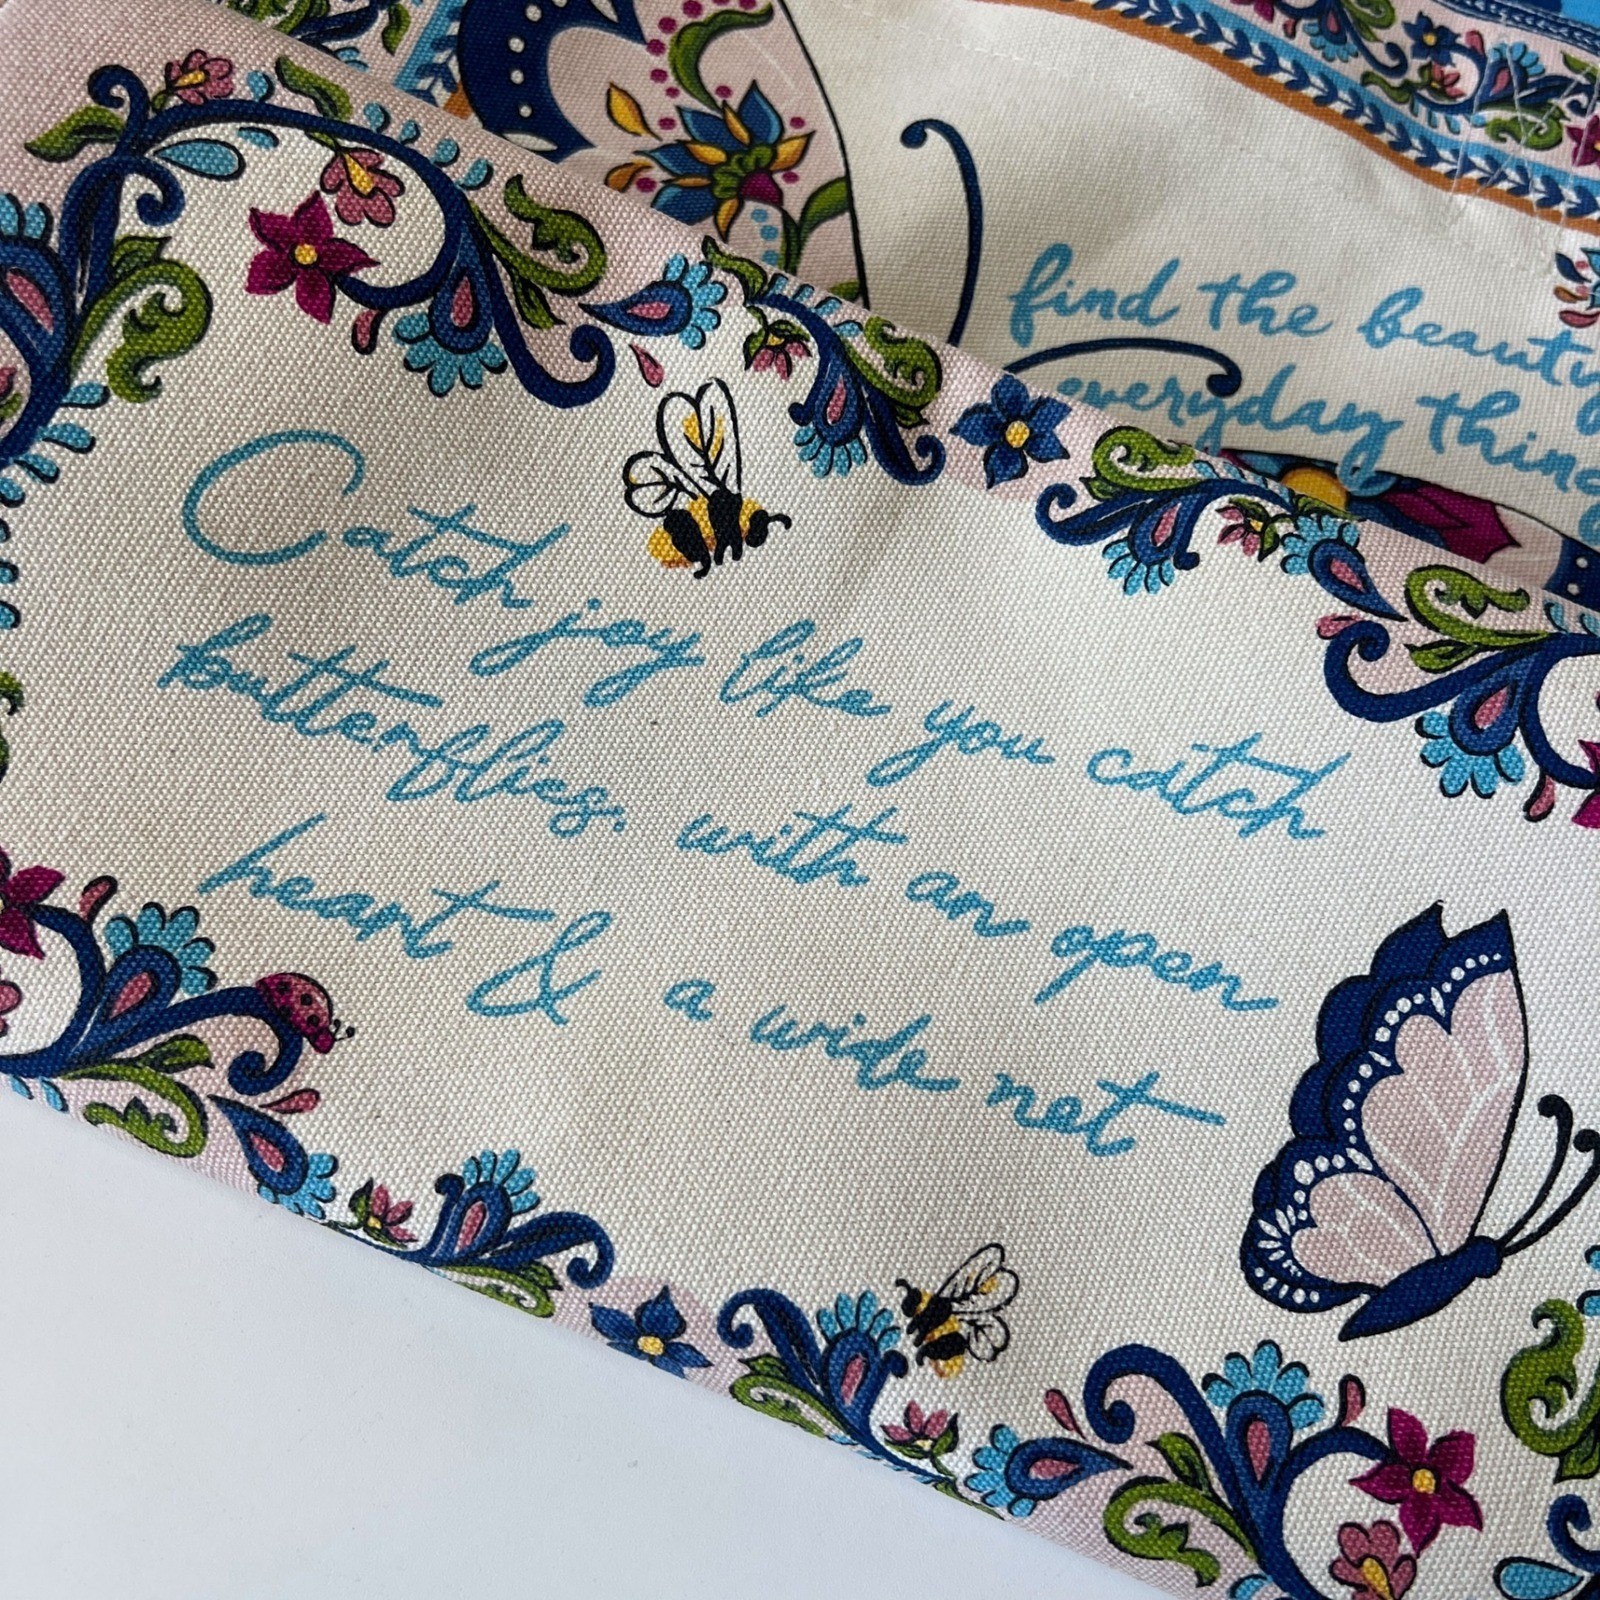 find the beauty
everyday things
Catch joy like you catch
butterflies: with an open
heart & a wide net